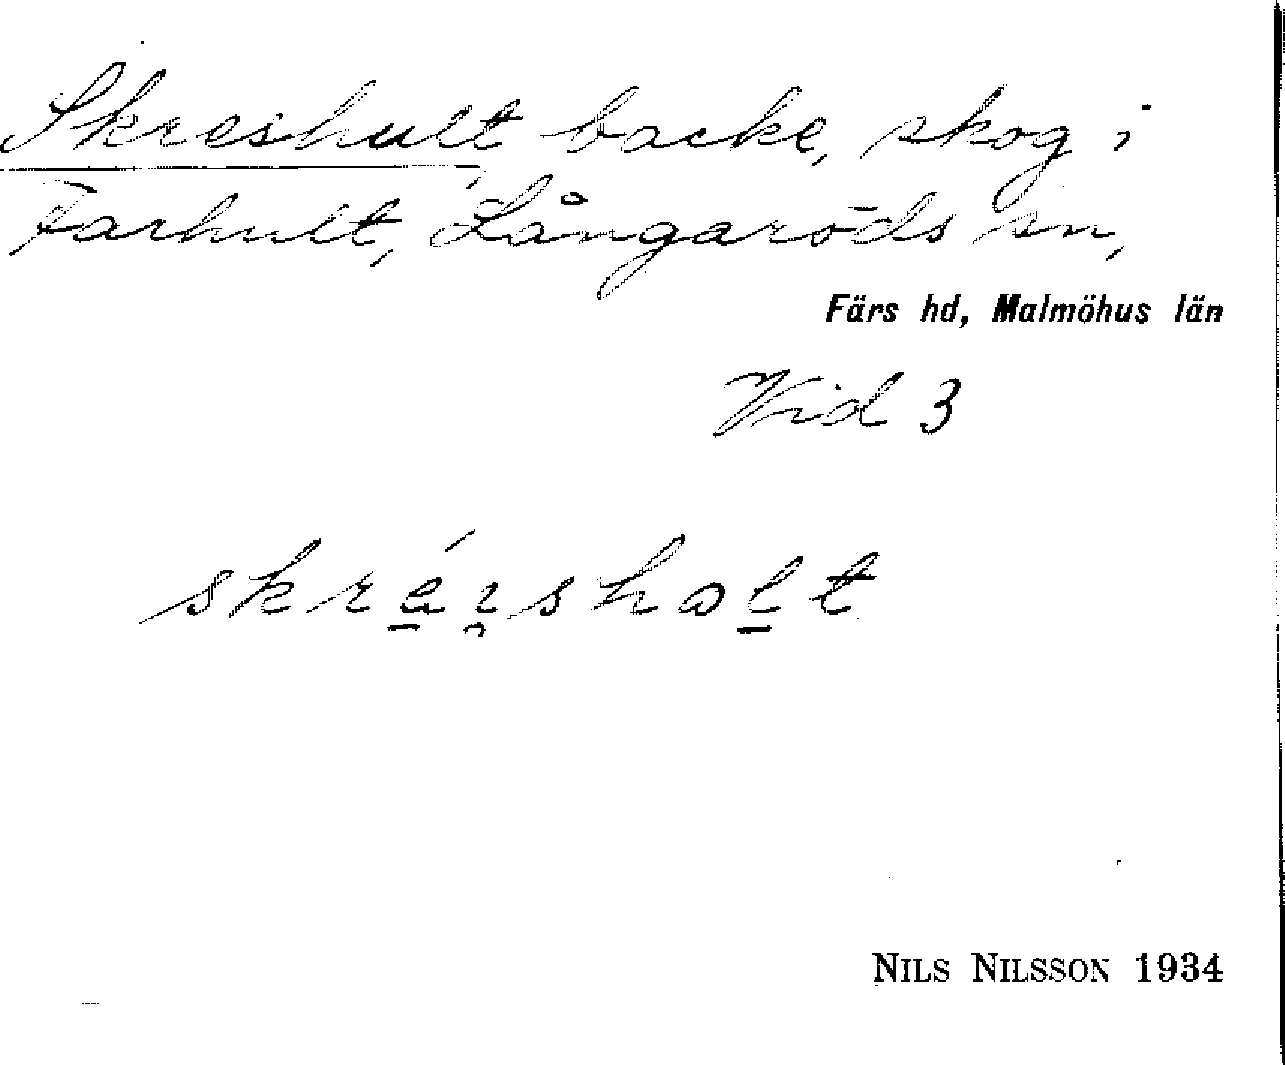 Skreshult, backe, skog i
Farhult, Långaröds sn,
Färs hd, Malmöhus län
Vid 3
NILS NILSSON 1934